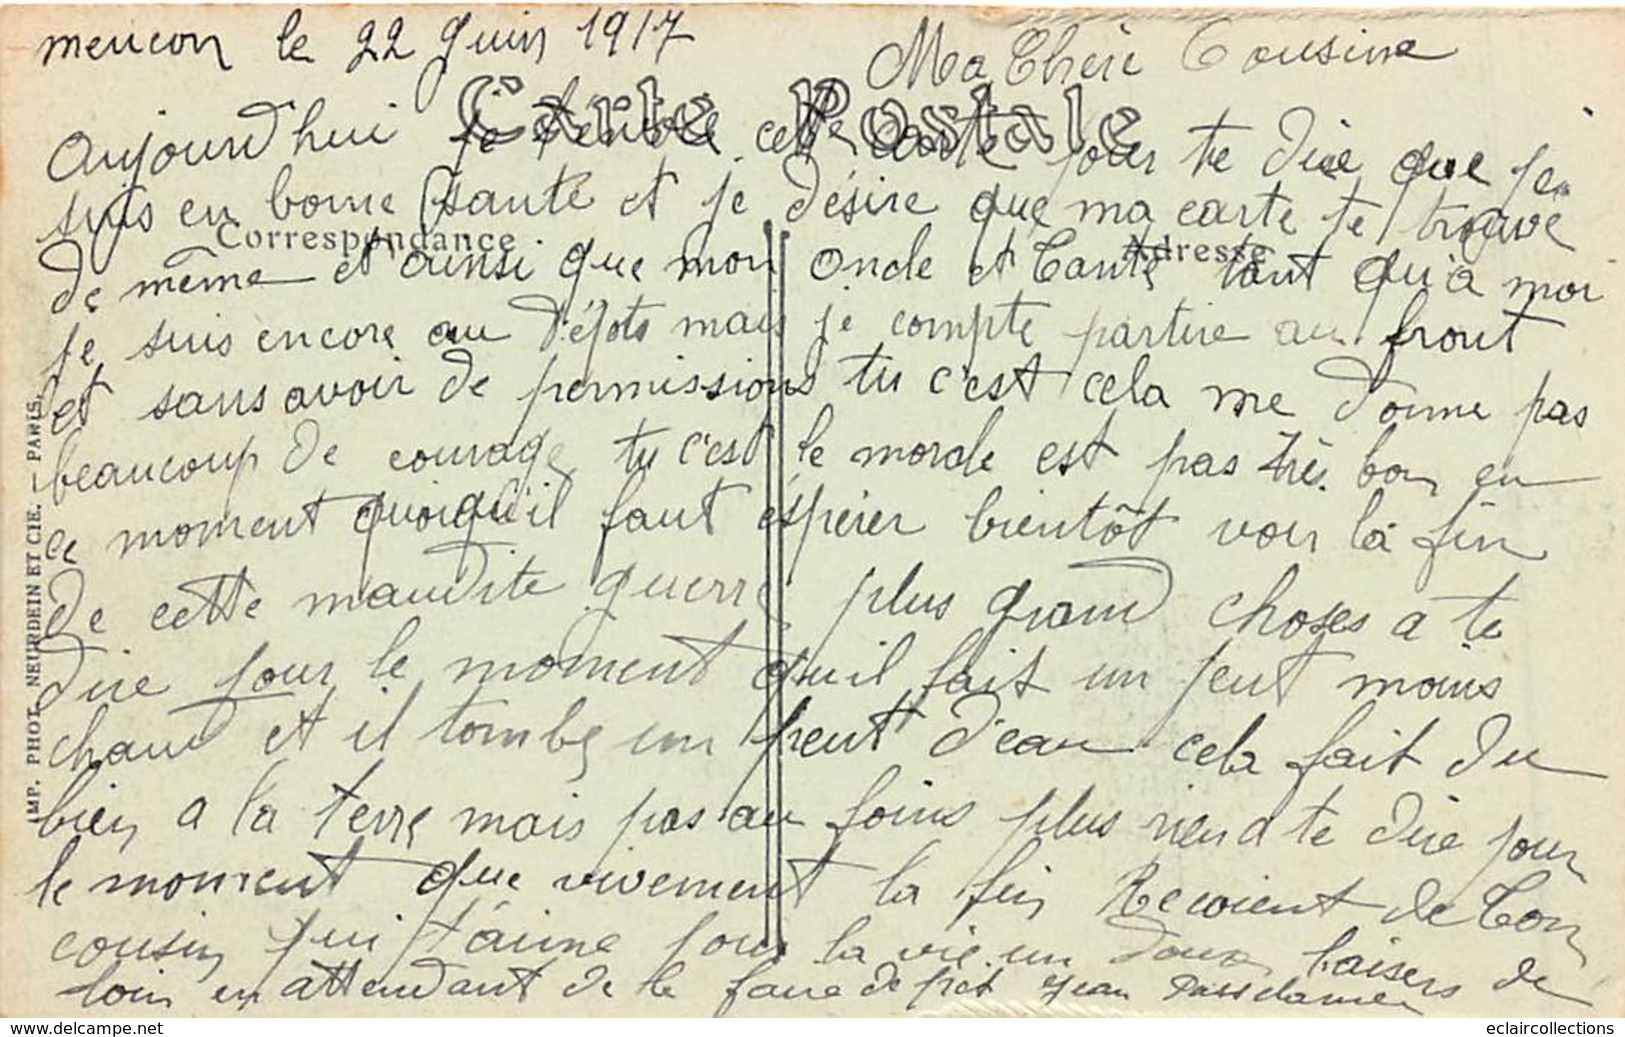 meucon le 22 juin 1917
Ma Chère Cousine
Carte Postale
aujourd'hui je t'envoie cette carte pour te dire que je
suis en bonne santé et je désire que ma carte te trouve
Correspondance
Adresse
de même et ainsi que mon Oncle et Tante tant qu'a moi
je suis encore au dépots mais je compte partire au front
et sans avoir de permissions tu c'est cela me donne pas
beaucoup de courage tu c'est le morale est pas très bon en
ce moment quoiqu'il faut éspérer bientôt voir la fin
de cette maudite guerre plus grand choses a te
dire pour le moment qu'il fait un peut moins
chaud et il tombe un peut d'eau cela fait du
bien a la terre mais pas au foins plus rien a te dire pour
le moment que vivement la fin Recoient de Ton
cousin qui t'aime pour la vie un doux baisers de
loin en attendant de le faire de près Jean
IMP. PHOT. NEURDEIN ET CIE. - PARIS.
www.delcampe.net
eclaircollections